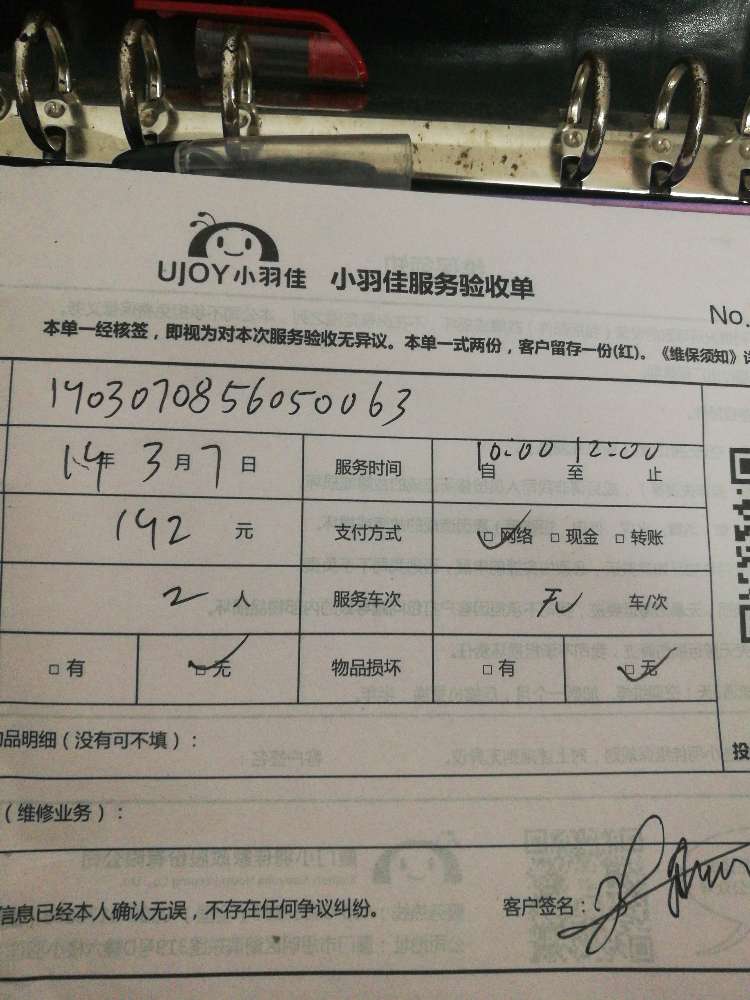 UJOY小羽佳 小羽佳服务验收单
No.
本单一经核签，即视为对本次服务验收无异议。本单一式两份，客户留存一份(红)。《维保须知》
1403070856050063
14年 3月 7日 服务时间 自10:00 至12:00 止
142 元 支付方式 □网络 □现金 □转账
2 人 服务车次 无 车/次
□有 □无 物品损坏 □有 □无
品明细（没有可不填）：
投
（维修业务）：
信息已经本人确认无误，不存在任何争议纠纷。 客户签名：